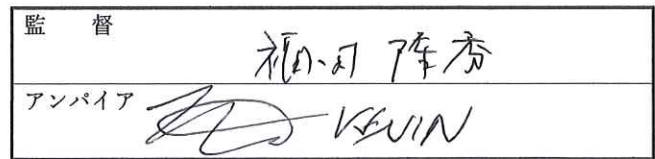 監 督
隆秀
アンパイア
KEVIN